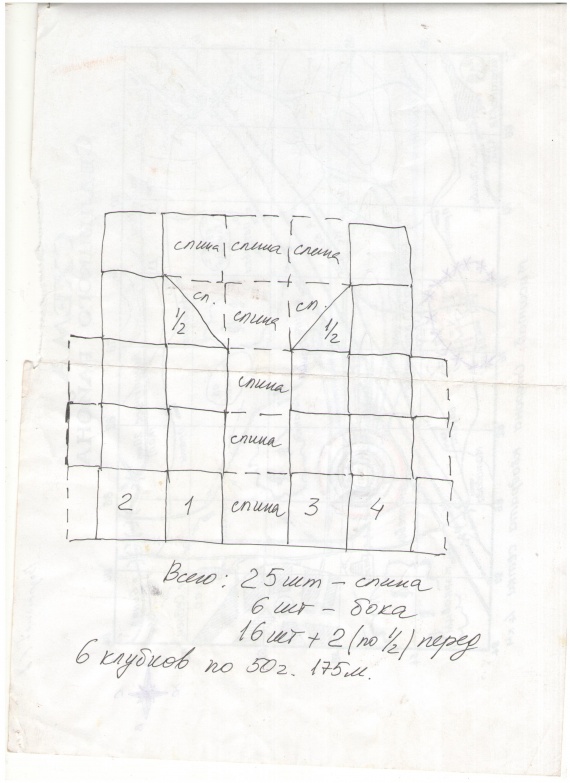 спина спина спина
сп. спина сп.
1/2 1/2
спина
спина
2 1 спина 3 4
Всего: 25 шт – спина
6 шт – бока
16 шт + 2 (по 1/2) перед
6 клубков по 50 г. 175 м.